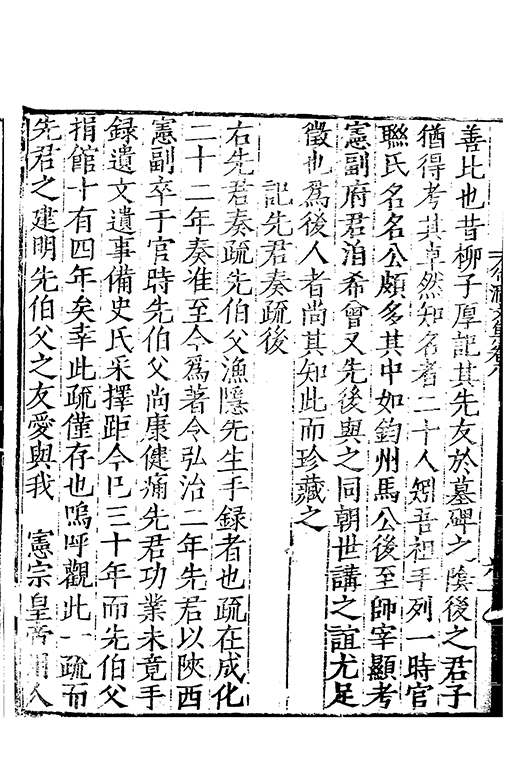 善比也昔柳子厚記其先友於墓碑之陰後之君子
猶得考其卓然知名者二十人矧吾祖手列一時官
聮氏名名公頗多其中如鈞州馬公後至師宰顯考
憲副府君洎希曾又先後與之同朝世講之誼尤足
徵也爲後人者尚其知此而珍藏之
記先君奏疏後
右先君奏疏先伯父漁隱先生手録者也疏在成化
二十二年奏准至今爲著令弘治二年先君以陝西
憲副卒于官時先伯父尚康健痛先君功業未竟手
録遺文遺事備史氏采擇距今巳三十年而先伯父
捐館十有四年矣幸此疏僅存也嗚呼觀此一疏而
先君之建明先伯父之友愛與我 憲宗皇帝用人